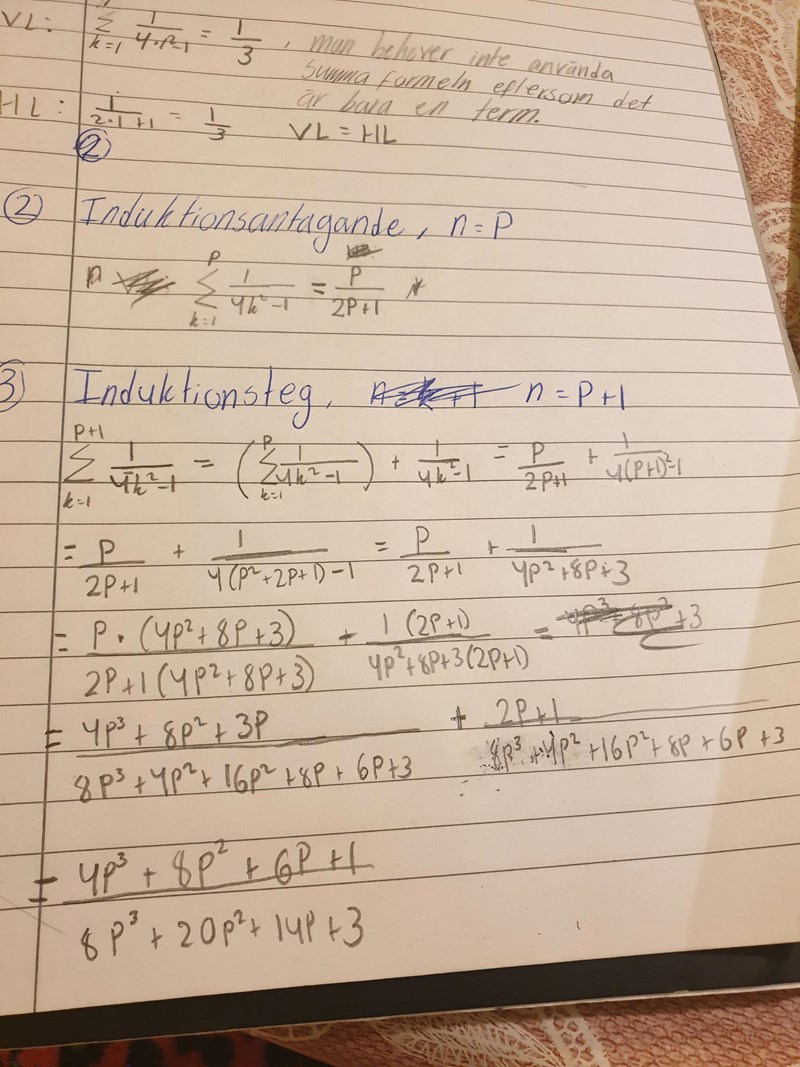 VL: ∑_{k=1} 1/(4·1²-1) = 1/3 , man behöver inte använda
summa formeln eftersom det
är bara en term.
HL: 1/(2·1+1) = 1/3 VL = HL
② Induktionsantagande, n = P
∑_{k=1}^{P} 1/(4k²-1) = P/(2P+1) *
3) Induktionsteg, n = P+1
∑_{k=1}^{P+1} 1/(4k²-1) = (∑_{k=1}^{P} 1/(4k²-1)) + 1/(4k²-1) = P/(2P+1) + 1/(4(P+1)²-1)
= P/(2P+1) + 1/(4(P²+2P+1)-1) = P/(2P+1) + 1/(4P²+8P+3)
= P·(4P²+8P+3)/2P+1(4P²+8P+3) + 1(2P+1)/4P²+8P+3(2P+1) = +3
= (4P³+8P²+3P)/(8P³+4P²+16P²+8P+6P+3) + (2P+1)/(8P³+4P²+16P²+8P+6P+3)
= (4P³+8P²+6P+1)/(8P³+20P²+14P+3)